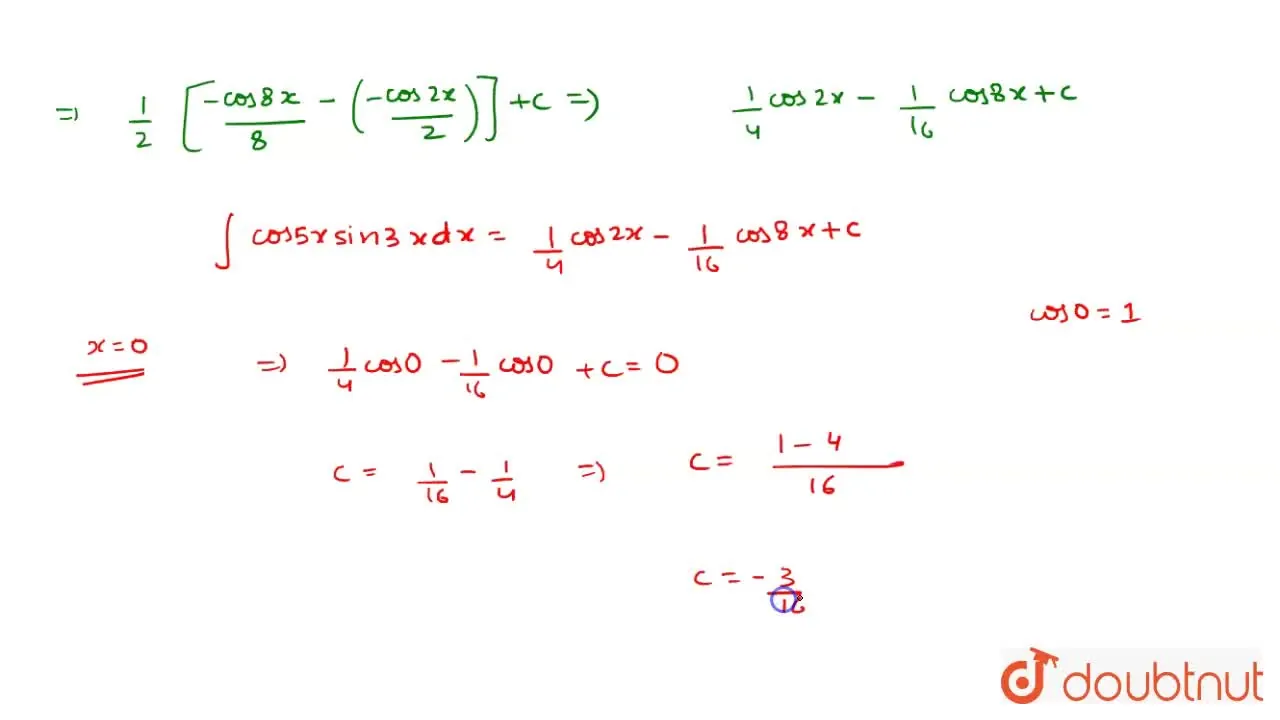 => 1/2 [-cos8x/8 - (-cos2x/2)] + c => 1/4 cos2x - 1/16 cos8x + c
∫ cos5x sin3x dx = 1/4 cos2x - 1/16 cos8x + c
cos0 = 1
x = 0 => 1/4 cos0 - 1/16 cos0 + c = 0
c = 1/16 - 1/4 => c = 1 - 4/16
c = - 3/16
doubtnut